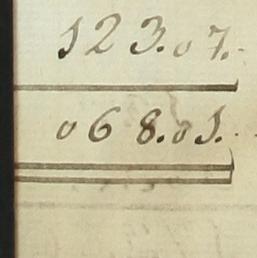 123.07.
068.01.